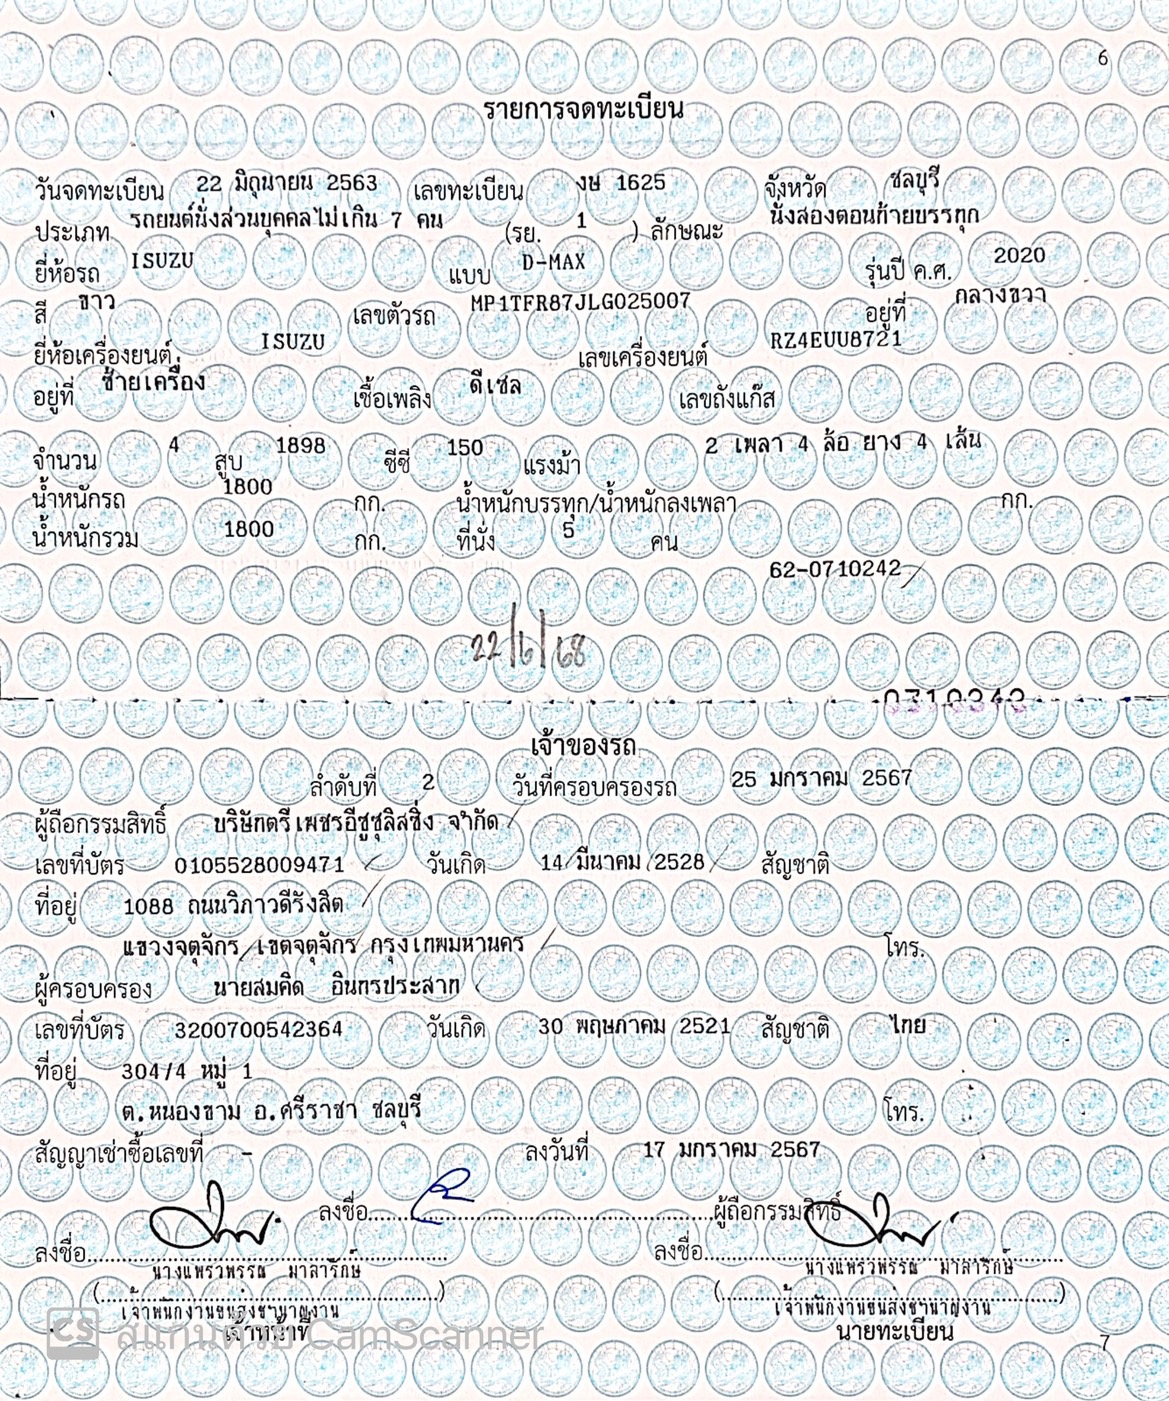 6
รายการจดทะเบียน
วันจดทะเบียน 22 มิถุนายน 2563 เลขทะเบียน งษ 1625 จังหวัด ชลบุรี
ประเภท รถยนต์นั่งส่วนบุคคลไม่เกิน 7 คน (รย. 1 ) ลักษณะ นั่งสองตอนท้ายบรรทุก
ยี่ห้อรถ ISUZU แบบ D-MAX รุ่นปี ค.ศ. 2020
สี ขาว เลขตัวรถ MP1TFR87JLG025007 อยู่ที่ กลางขวา
ยี่ห้อเครื่องยนต์ ISUZU เลขเครื่องยนต์ RZ4EUU8721
อยู่ที่ ซ้ายเครื่อง เชื้อเพลิง ดีเซล เลขถังแก๊ส
จำนวน 4 สูบ 1898 ซีซี 150 แรงม้า 2 เพลา 4 ล้อ ยาง 4 เส้น
น้ำหนักรถ 1800 กก. น้ำหนักบรรทุก/น้ำหนักลงเพลา กก.
น้ำหนักรวม 1800 กก. ที่นั่ง 5 คน
62-0710242
22/6/68
0710242
เจ้าของรถ
ลำดับที่ 2 วันที่ครอบครองรถ 25 มกราคม 2567
ผู้ถือกรรมสิทธิ์ บริษัทตรีเพชรอีซูซุลิสซิ่ง จำกัด
เลขที่บัตร 0105528009471 วันเกิด 14 มีนาคม 2528 สัญชาติ
ที่อยู่ 1088 ถนนวิภาวดีรังสิต
แขวงจตุจักร เขตจตุจักร กรุงเทพมหานคร โทร.
ผู้ครอบครอง นายสมคิด อินทรประสาท
เลขที่บัตร 3200700542364 วันเกิด 30 พฤษภาคม 2521 สัญชาติ ไทย
ที่อยู่ 304/4 หมู่ 1
ต.หนองขาม อ.ศรีราชา ชลบุรี โทร.
สัญญาเช่าซื้อเลขที่ - ลงวันที่ 17 มกราคม 2567
ลงชื่อ ผู้ถือกรรมสิทธิ์
ลงชื่อ ลงชื่อ
นางแพรวพรรณ มาลารักษ์ นางแพรวพรรณ มาลารักษ์
( ) ( )
เจ้าพนักงานขนส่งชำนาญงาน เจ้าพนักงานขนส่งชำนาญงาน
เจ้าหน้าที่ นายทะเบียน
CS สแกนด้วย CamScanner
7